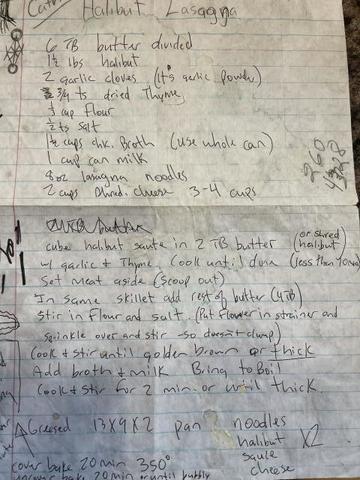 Halibut Lasagna
6 TB butter divided
1½ lbs halibut
2 Garlic cloves (It's garlic powder)
3/4 ts dried Thyme
⅓ cup flour
½ ts salt
1½ cups chk. Broth (use whole can)
1 cup can milk
8oz lasagna noodles
2 cups shred. cheese 3-4 cups
260
4328
cube halibut saute in 2 TB butter (or shred halibut)
w/ garlic & Thyme. Cook until dun (less than 10min)
Set meat aside (scoop out)
In same skillet add rest of butter (4TB)
Stir in flour and salt. (Put flower in strainer and
sprinkle over and stir - so doesn't clump)
Cook & stir until golden brown or thick
Add broth & milk Bring to Boil
Cook & stir for 2 min. or until thick.
Greased 13X9X2 pan
noodles
halibut X2
sauce
cheese
cover bake 20 min 350°
uncover bake 20 min or until bubbly